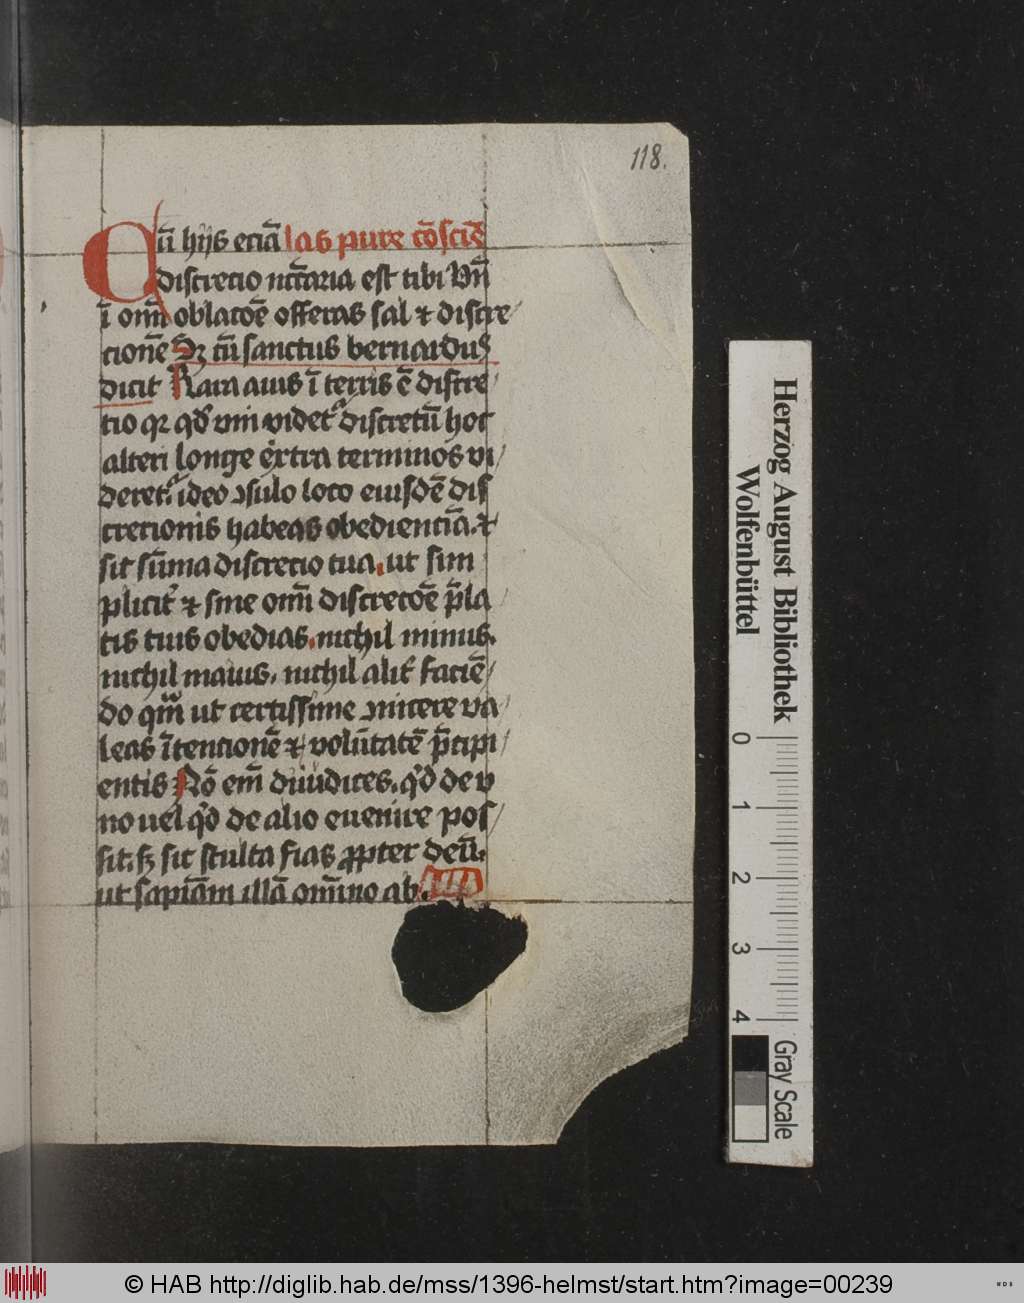 118.
Cū hijs eciā las pure cōsciē
discrecio nc̄caria est tibi Vn̄
ī om̄ oblacōe offeras sal ⁊ discre
cionē Sꝫ cū sanctus bernardus
dicit Rara auis ī terris ē discre
tio qꝛ qd̕ vni videt᷑ discretū hoc
alteri longe extra terminos vi
deret᷑ ideo ꝯsulo loco eiusdē dis
crecionis habeas obedienciā. ⁊
sit sūma discrecio tua. ut sim
plicit̕ ⁊ sine om̄i discrecōe p̄la
tis tuis obedias. nichil minus.
nichil maius. nichil alit̕ faciē
do qm̄ ut certissime ꝯnicere va
leas ītencionē ⁊ volūtatē p̄cipi
entis Nō em̄ diiudices. qd̕ de v
no uel qd̕ de alio euenire pos
sit. sꝫ sit stulta fias ꝓpter deū.
ut sapiām illā om̄ino ab.
Herzog August Bibliothek
Wolfenbüttel
0 1 2 3 4
Gray Scale
© HAB http://diglib.hab.de/mss/1396-helmst/start.htm?image=00239
WDB